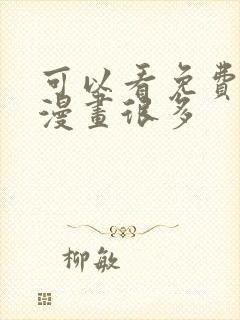 可以看免費
漫畫很多
柳敏